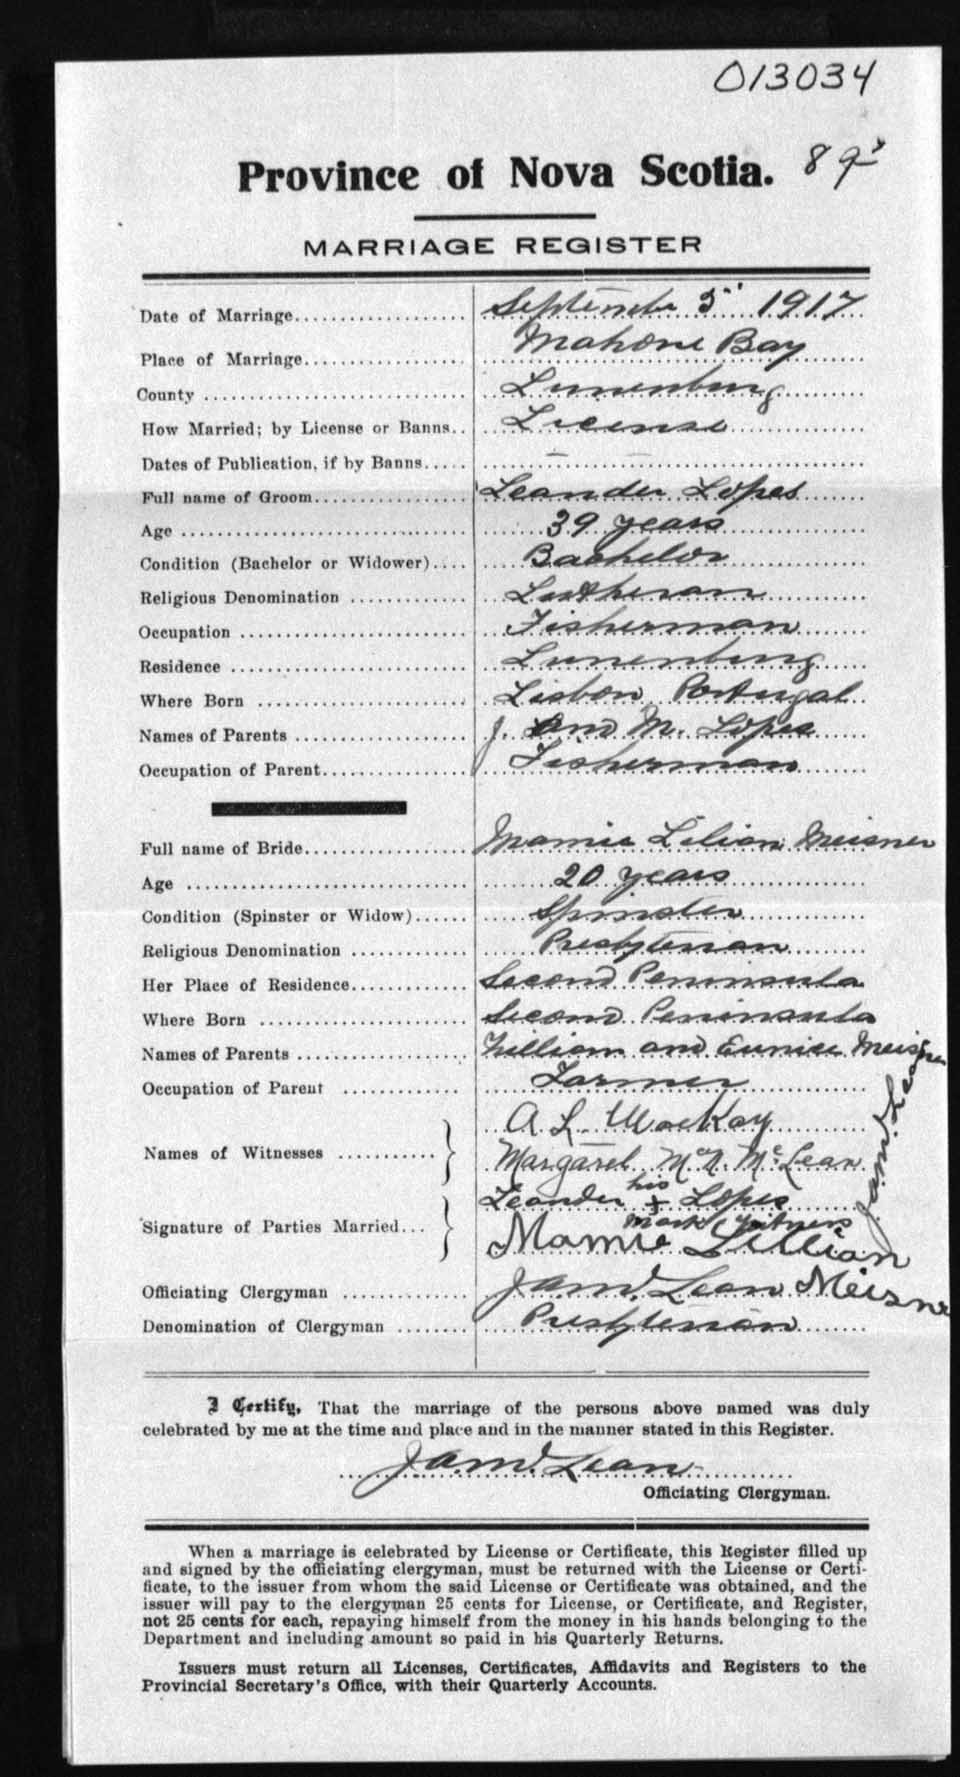 013034
Province of Nova Scotia.
MARRIAGE REGISTER
Date of Marriage September 5" 1917
Place of Marriage Mahone Bay
County Lunenburg
How Married; by License or Banns License
Dates of Publication, if by Banns — —
Full name of Groom Leander Lopes
Age 39 years
Condition (Bachelor or Widower) Bachelor
Religious Denomination Lutheran
Occupation Fisherman
Residence Lunenburg
Where Born Lisbon, Portugal
Names of Parents J. and M. Lopes
Occupation of Parent Fisherman
Full name of Bride Mamie Lilian Meisner
Age 20 years
Condition (Spinster or Widow) Spinster
Religious Denomination Presbyterian
Her Place of Residence Second Peninsula
Where Born Second Peninsula
Names of Parents William and Eunice Meisner
Occupation of Parent Farmer
Names of Witnesses A. L. MacKay
Margaret McN. McLean
Signature of Parties Married Leander his + mark Lopes witness
Mamie Lillian Meisner
Officiating Clergyman
Denomination of Clergyman Presbyterian
I Certify, That the marriage of the persons above named was duly
celebrated by me at the time and place and in the manner stated in this Register.
Officiating Clergyman.
When a marriage is celebrated by License or Certificate, this Register filled up
and signed by the officiating clergyman, must be returned with the License or Certi-
ficate, to the issuer from whom the said License or Certificate was obtained, and the
issuer will pay to the clergyman 25 cents for License, or Certificate, and Register,
not 25 cents for each, repaying himself from the money in his hands belonging to the
Department and including amount so paid in his Quarterly Returns.
Issuers must return all Licenses, Certificates, Affidavits and Registers to the
Provincial Secretary's Office, with their Quarterly Accounts.